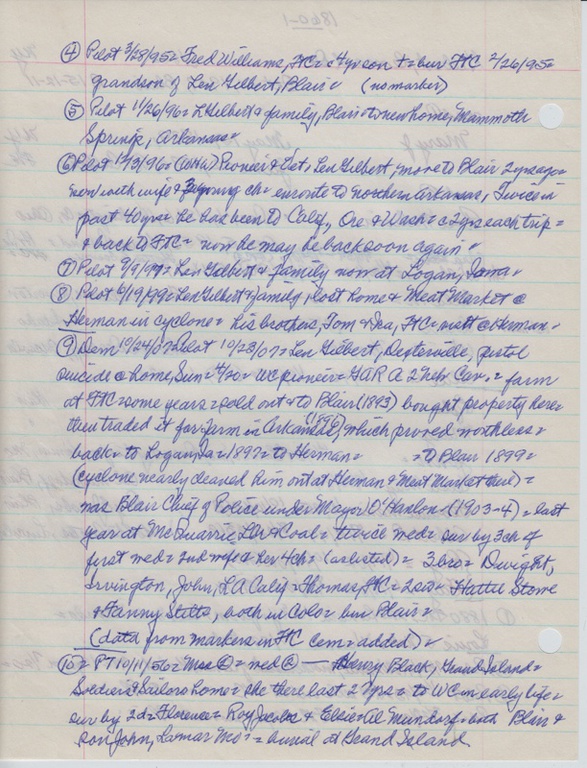 1860-1
④ Pilot 3/28/95 = Fred Williams, FtC = c 4 yrs on + = bur FtC 2/26/95 =
grandson of Len Gilbert, Blair = (no marker)
⑤ Pilot 11/26/96 = L Gilbert & family, Blair = to new home, Mammoth
Springs, Arkansas =
⑥ Pilot = Pioneer & Vet, Len Gilbert, move to Blair 2 yrs ago =
now with wife & young ch = enroute to northern Arkansas, Twice in
past 40 yrs = he has been to Calif, Ore & Wash = c 2 yrs each trip =
& back to FtC = now he may be back soon again =
⑦ Pilot 9/9/97 = Len Gilbert & family now at Logan, Iowa =
⑧ Pilot 6/19/99 = Len Gilbert & family, lost home & Meat Market @
Herman in cyclone = his brothers, Tom & Ira, FtC = visit @ Herman =
⑨ Dem 10/24/07 = Pilot 10/23/07 = Len Gilbert, Dexterville, pistol
suicide @ home, Sun = 4/20 = WC pioneer = GAR A 2 Nebr Cav. = farm
at FtC = some years = sold out & to Blair (1893) bought property here =
then traded it for farm in Arkansas (1896) which proved worthless =
back = to Logan, Ia = 1897 = to Herman = to Blair 1899 =
(cyclone nearly cleaned him out at Herman & Meat Market there) =
was Blair Chief of Police under Mayor O'Hanlon = (1903-4) = last
year at McQuarrie Lbr & Coal = twice med = sur by 3 ch of
first med = 2nd wife & her 4 ch = (as listed) = 3 bro = Dwight,
Irvington, John, LA Calif = Thomas, FtC = 2 sis = Hattie Stowe
& Fanny Stitts, both in Colo = bur Blair =
(data from markers in FtC cem = added) =
⑩ = PT 10/11/56 = Mrs = med — Henry Black, Grand Island =
Soldiers & Sailors home = she there last 27 yrs = to WC in early life =
sur by 2 d = Florence = Roy Jacobs & Elsie = Al Mundorf = both Blair &
son John, Lamar Mo = = burial at Grand Island